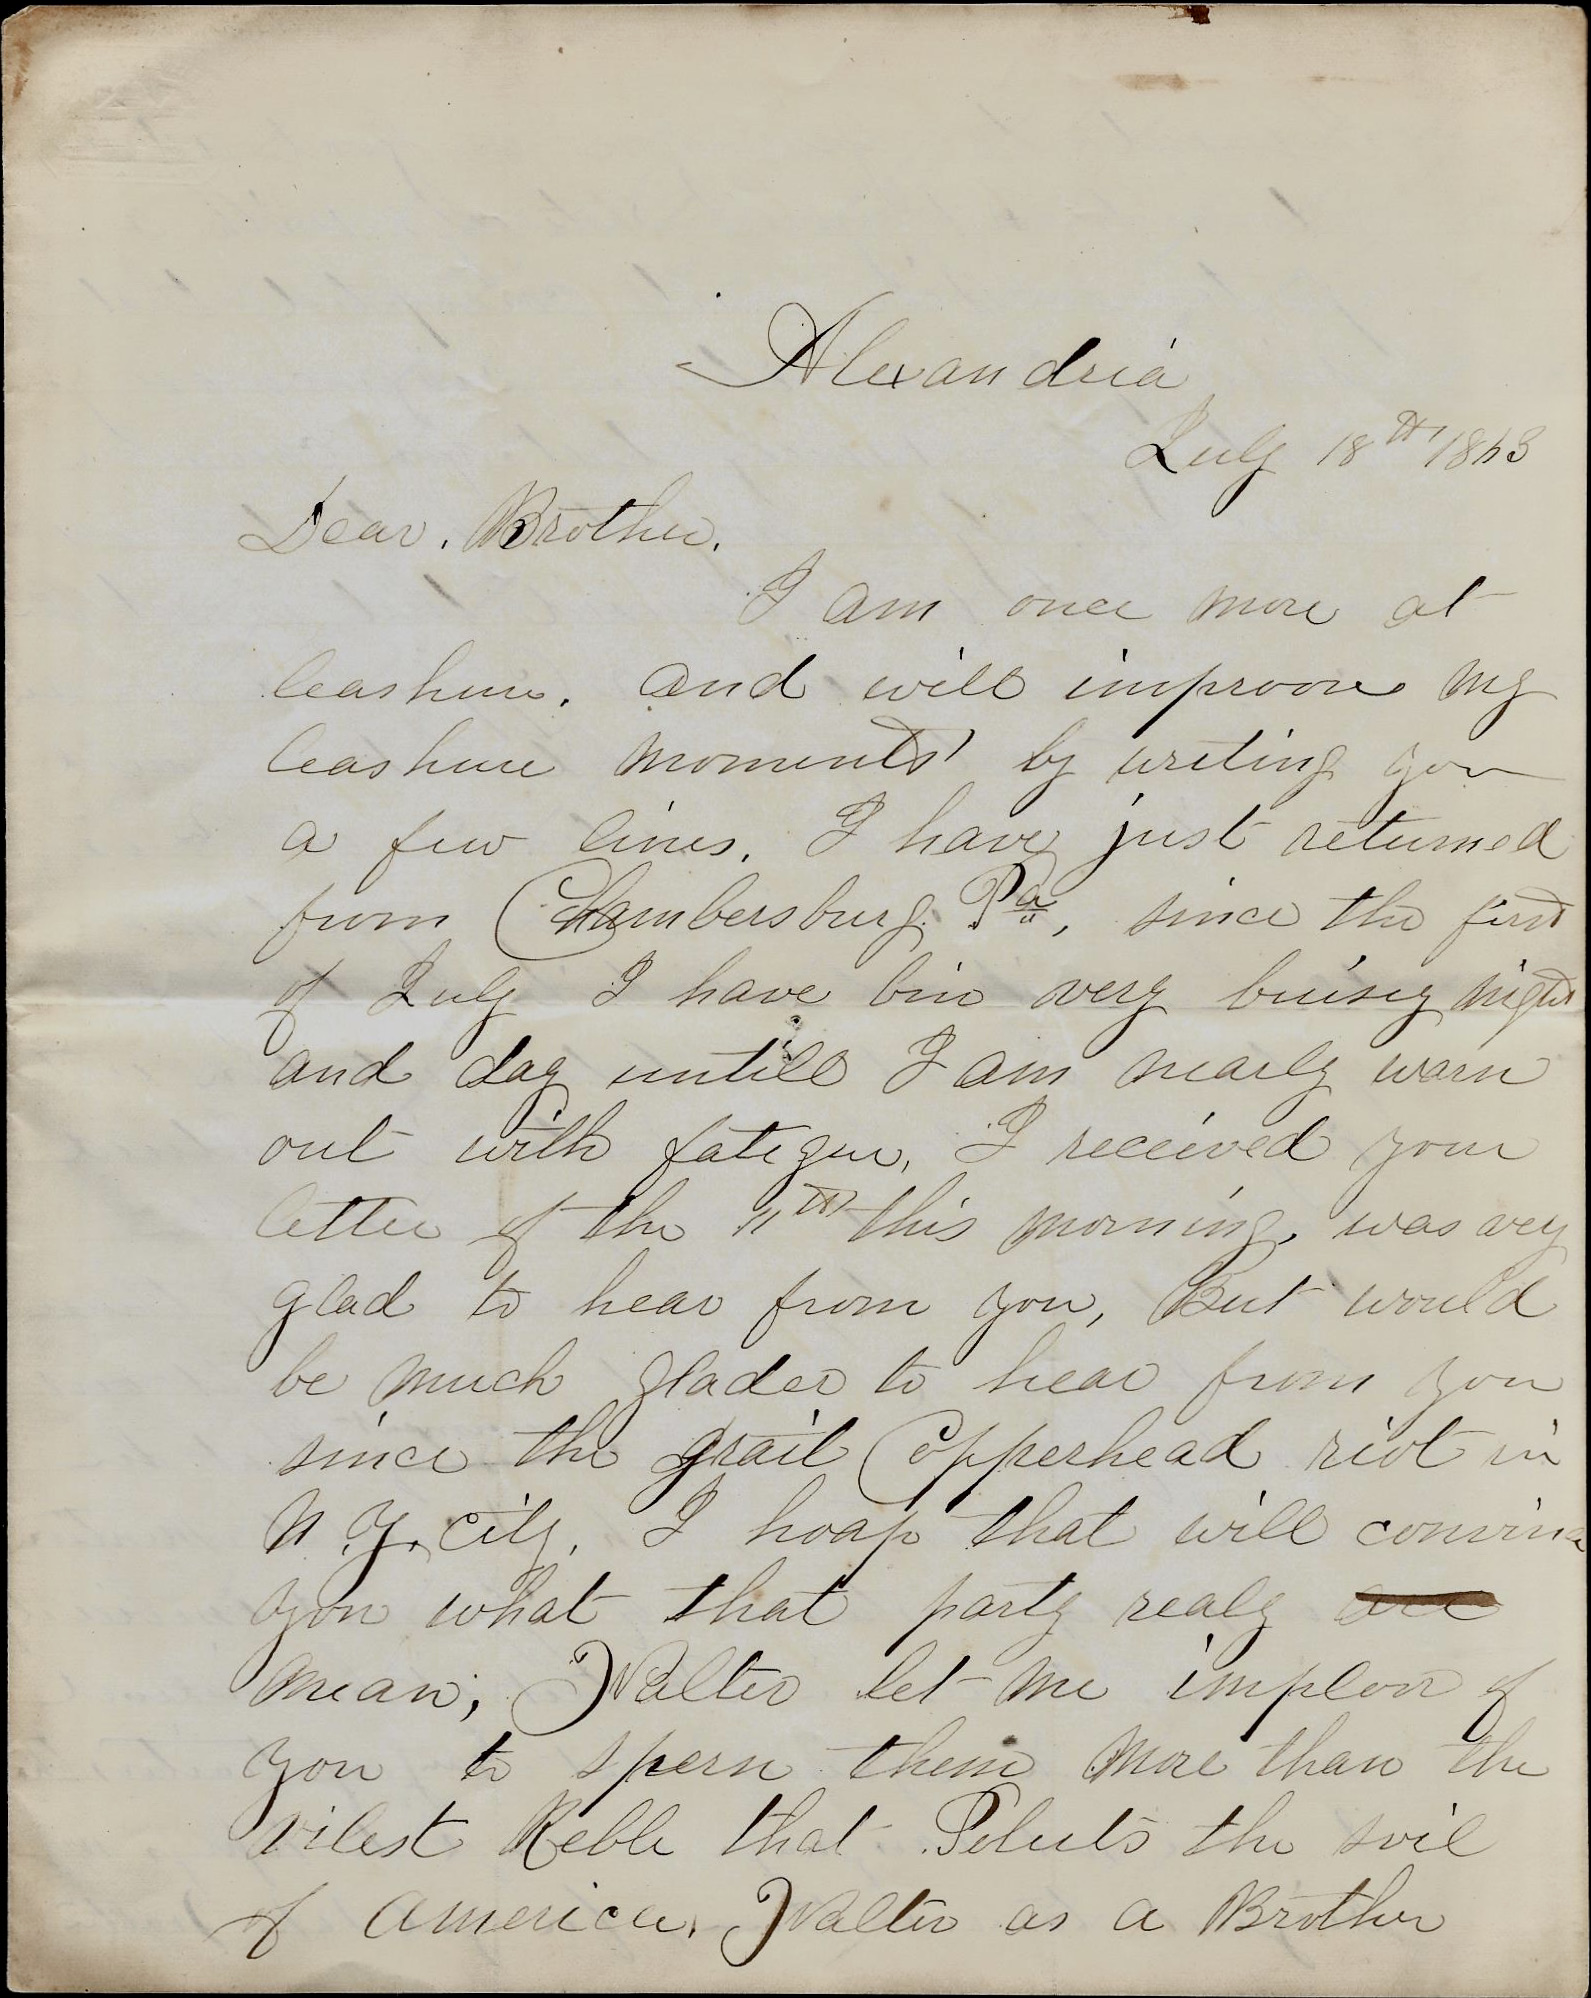 Alexandria
July 18th 1863
Dear. Brother.
I am once more at
leashure. and will improove my
leashure moments by writing you
a few lines. I have just returned
from Chambersburg Pa, since the first
of July I have bin very buisey night
and day untill I am nearly warn
out with fatigue, I received your
letter of the 11th this morning, was very
glad to hear from you, But would
be much glader to hear from you
since the grait Copperhead riot in
N.Y. city. I hoap that will convince
you what that party realy are
mean; Walter let me implore of
you to spern them more than the
vilest Reble that Peluts the soil
of America. Walter as a Brother